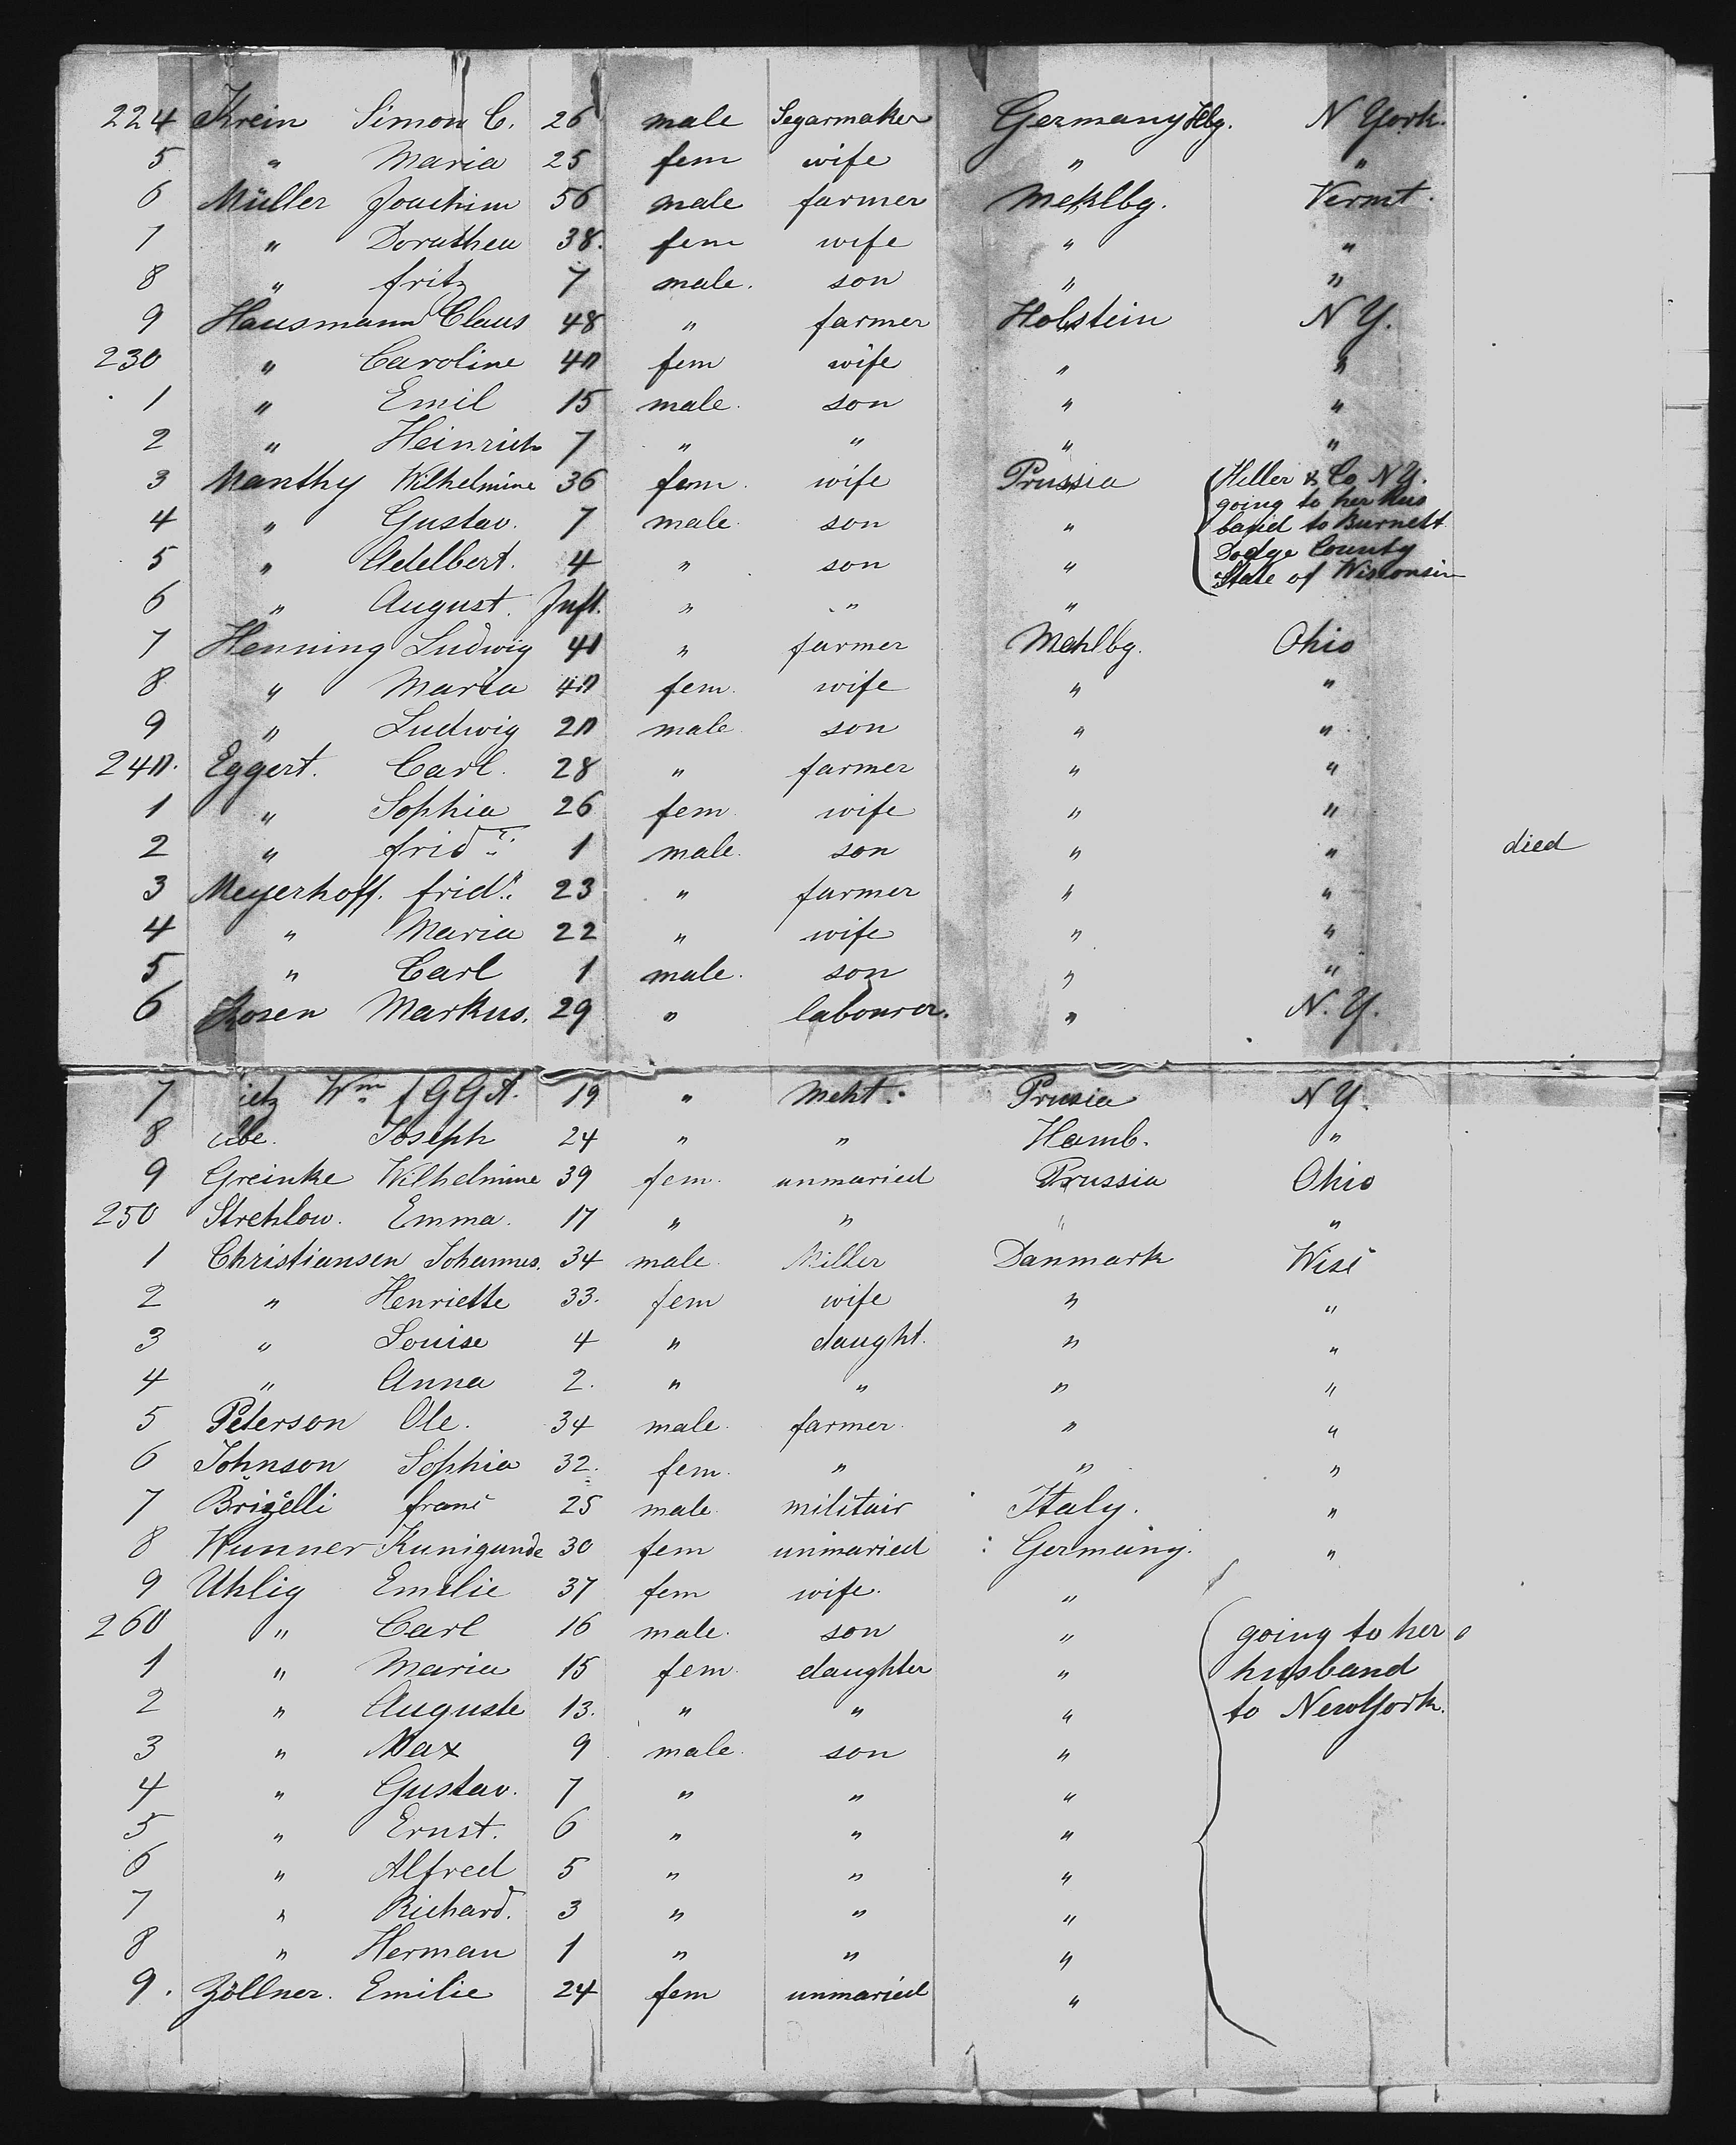 224 Krein Simon C. 26 male Segarmaker Germany Hbg. N York.
5 " Maria 25 fem wife " "
6 Müller Joachim 56 male farmer Meklbg. Vermt.
7 " Dorathea 38. fem wife " "
8 " fritz 7 male. son " "
9 Hausmann Claus 48 " farmer Holstein N Y.
230 " Caroline 40 fem wife " "
1 " Emil 15 male. son " "
2 " Heinrich 7 " " " "
3 Manthy Wilhelmine 36 fem. wife Prussia Heller & Co N Y.
going to her hus
4 " Gustav. 7 male. son " band to Burnett
5 " Adelbert. 4 " son " Dodge County
State of Wisconsin
6 " August. Inft. " " "
7 Henning Ludwig 41 " farmer Meklbg. Ohio
8 " Maria 40 fem. wife " "
9 " Ludwig 20 male son " "
240. Eggert. Carl. 28 " farmer " "
1 " Sophia 26 fem wife " "
2 " frid 1 male. son " " died
3 Meyerhoff. frid 23 " farmer " "
4 " Maria 22 " wife " "
5 " Carl 1 male. son " "
6 Rosen Markus. 29 " labourer. " N. Y.
7 ietz Wm f G G A. 19 " Meht. Prusia N Y.
8 Joseph 24 " " Hamb. "
9 Greinke Wilhelmine 39 fem. unmaried Prussia Ohio
250 Strehlow. Emma. 17 " " " "
1 Christiansen Johannes. 34 male Miller Danmark Wisc
2 " Henriette 33. fem wife " "
3 " Louise 4 " daught. " "
4 " Anna 2. " " " "
5 Peterson Ole. 34 male. farmer. " "
6 Johnson Sophia 32. fem. " " "
7 Brizelli franc 25 male militair Italy. "
8 Wunner Kunigunde 30 fem unmaried Germany. "
9 Uhlig Emilie 37 fem wife. "
260 " Carl 16 male. son " going to her
1 " Maria 15 fem daughter " husband
2 " Auguste 13. " " " to NewYork.
3 " Max 9 male. son "
4 " Gustav. 7 " " "
5 " Ernst. 6 " " "
6 " Alfred 5 " " "
7 " Richard. 3 " " "
8 " Herman 1 " " "
9. Zöllner. Emilie 24 fem unmaried "